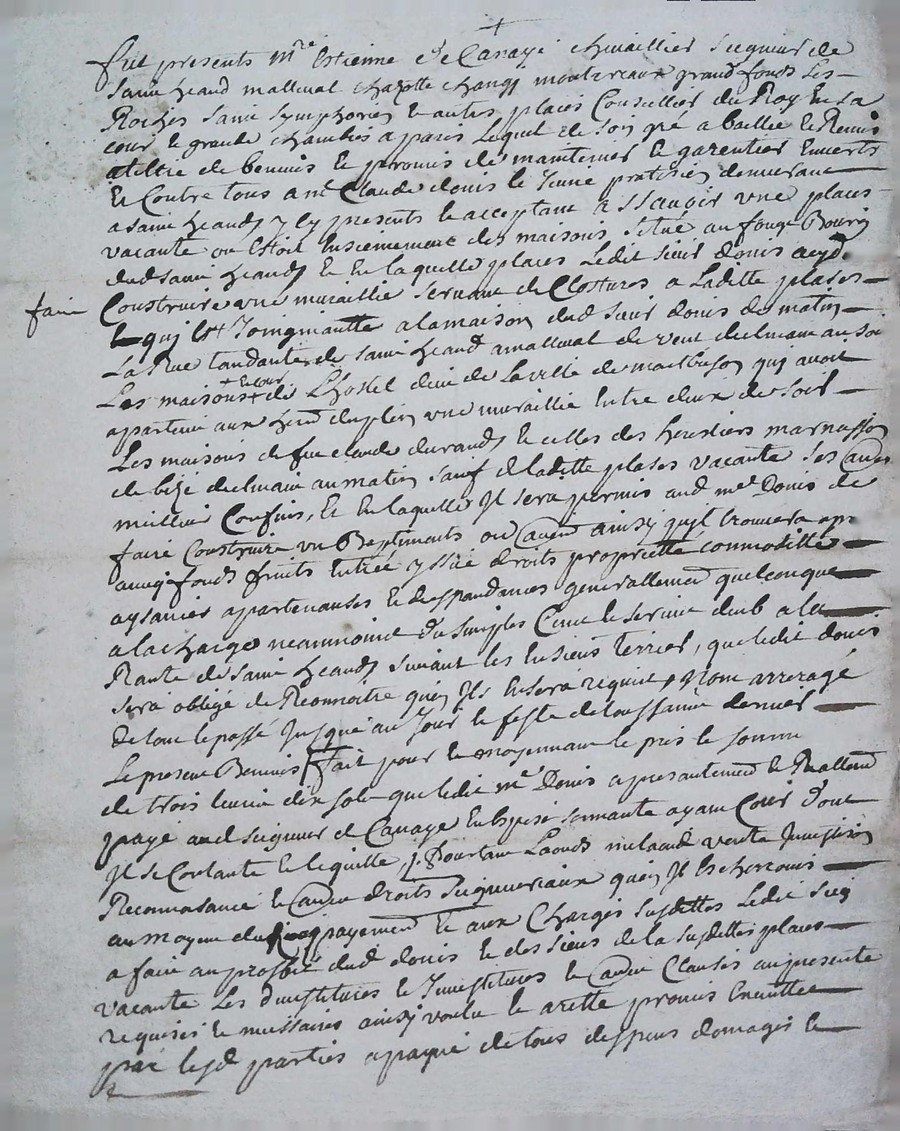 +
Fut presents Mre Estienne de Canaye chevaillier seigneur de
Saint heand malleval chazotte changy montereaux grand fonds Les
Roches Saint Symphorien & autres places Conseillier du Roy En sa
cour & grande chambre a paris Lequel de son gré a baillé & Remis
atiltre de bennis & promis de maintenir & garentier Envers
& Contre tous a me Claude donis le Jeune praticien demeurant
a saint heand y Cy presents & acceptant assavoir une place
vacante ou Estoit Ensiennement des maisons situé au fougt Bourg
dud saint heand & En laquelle place Ledit sieur donis ayd.
fait Construire une muraillie servant de Clotures a Laditte places
& quj Est Joingniantte ala maison dud sieur donis de matin
La Rue tandante de saint heand amalleval de vent declinant au soir
Les maisons + & cour de L'hostel dieu de La ville de montbrison quj avoit
apartenu aux une muraillie Entre deux de soir
Les maisons de feu claude durand & celles des heritiers marnasson
de bize declinant au matin sauf de laditte places vacante ses autres
meillieur Confins, & En laquelle Jl sera permis aud me Donis de
faire Construire un Baptiments ou autre ainsy quil trouvera
avecq fonds fruits Entrée yssüe droits proprietté commoditté
aysances apartenances & despandances generallement quelconque
ala charge neanmoins du simples Cens & servis deub a la
Rante de saint heand suivant les Ensiens Terrier, que ledit donis
sera obligé de Reconnoitre quen Jls Ensera requis, Non arreragé
de tout le passé Jusque au Jour & feste de toussaint dernier
Le present Bennis fait pour & moyennant le pris & somme
de trois livres dix sols que ledit me Donis a presantement & Reallement
payé aud seigneur de Canaye En Espece sonnante ayant Cour dont
Jl se Contante & le quitte, Pourtant Laouds milaods vente Jnvestison
Reconnoisance & autre droits Seigneuriaux quen Jl Escherrons
au moyen du payement & aux Charges susdittes Ledit seig
a fait au profit dud donis & des siens de la susdittes places
vacante Les devestitures & Jnvestitures & autre Clauses au presente
requises & nessaires ainsy voulu & aretté promis Enuttee
par lesd parties a payne de tous despens domages &